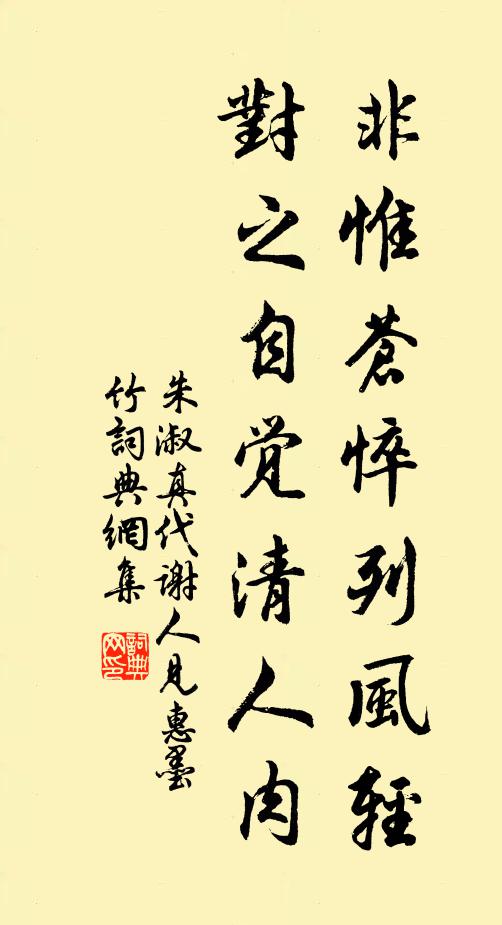 非惟蒼悴列風輕
對之自觉清人肉
朱淑真代谢人見惠墨
竹詞典網集
詞典网印